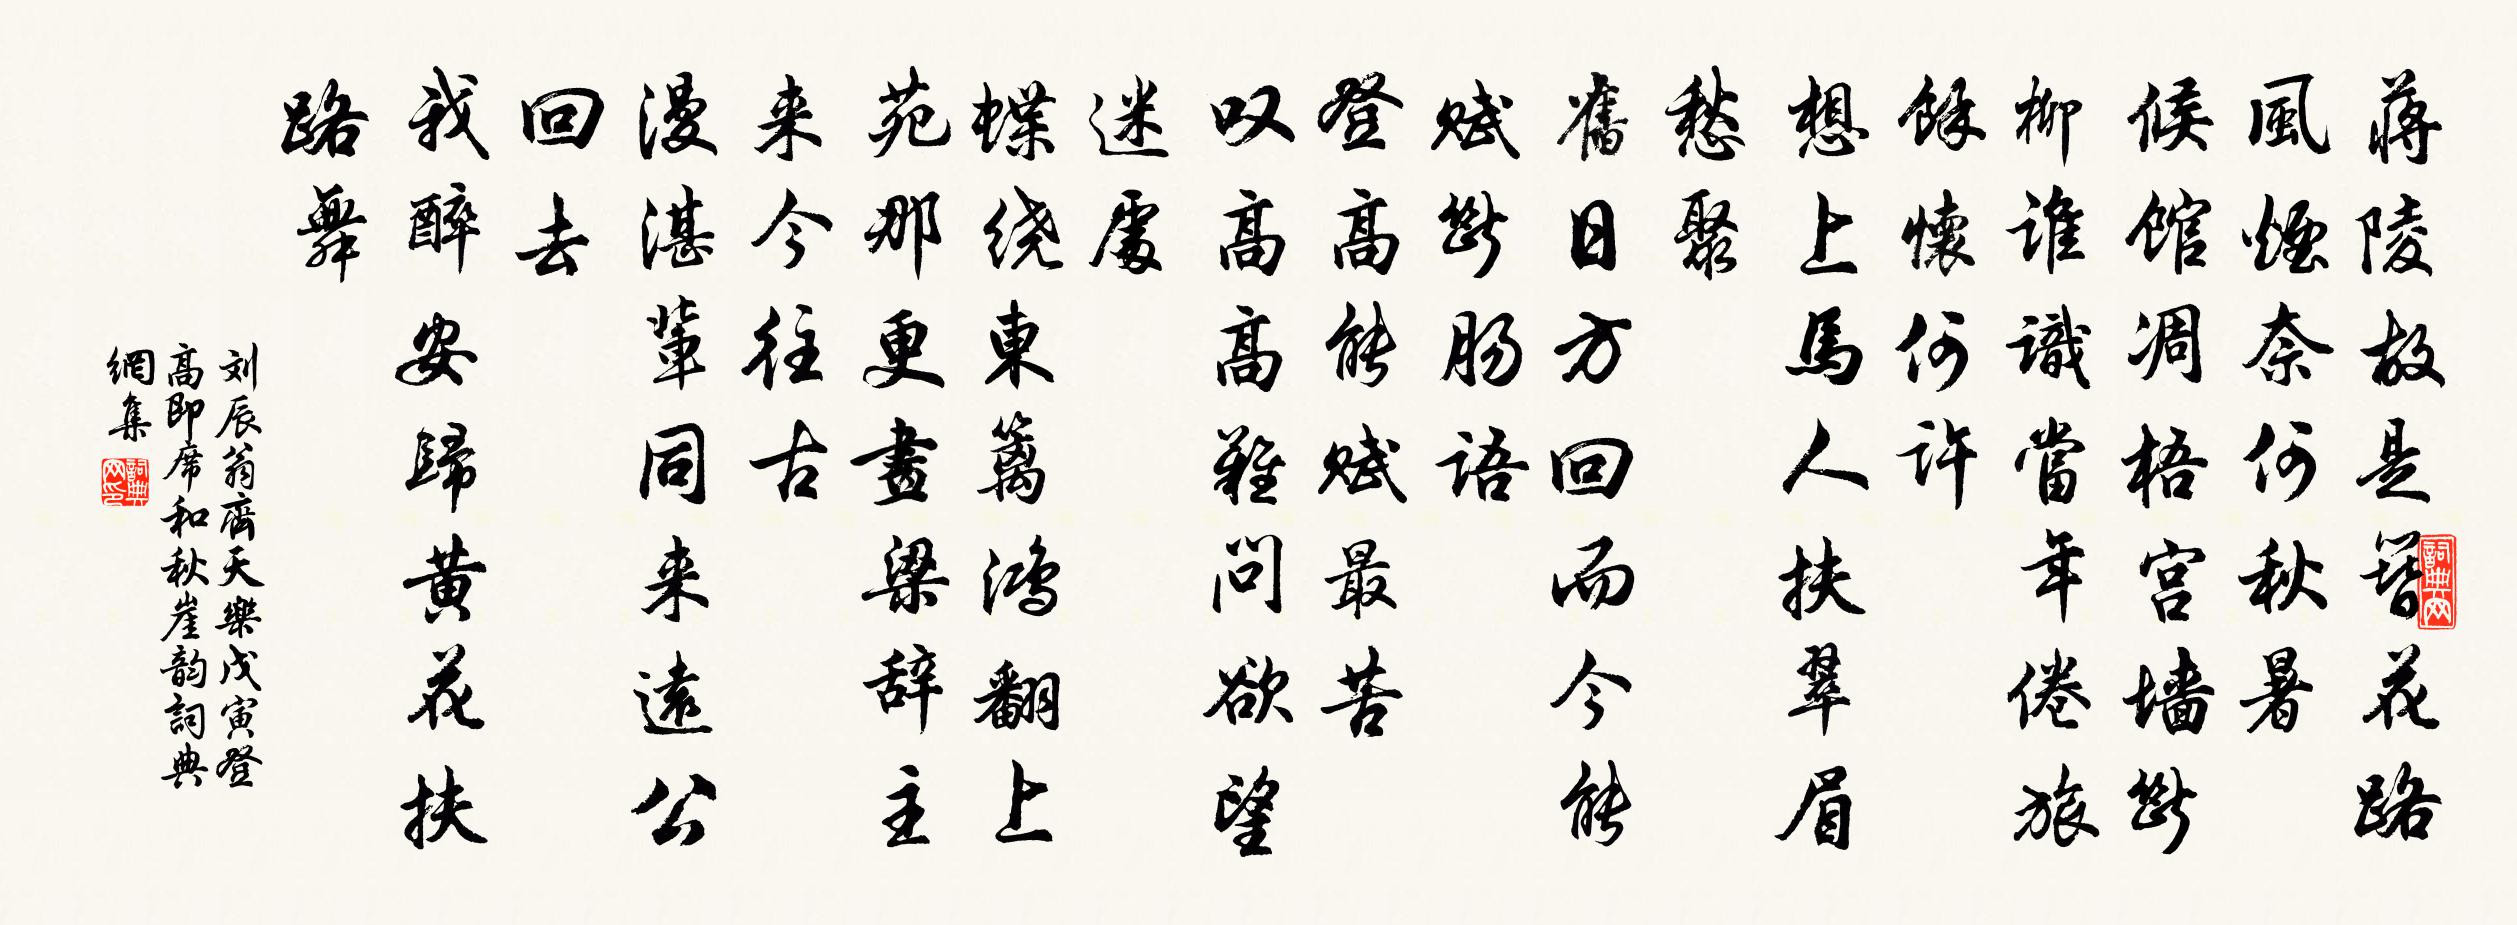 蔣陵故是簪花路
風煙奈何秋暑
候館凋梧宮墙斷
柳誰識當年倦旅
餘懷何許
想上馬人扶翠眉
愁聚
舊日方回而今能
賦斷肠语
登高能賦最苦
叹高高難問欲望
迷處
蝶绕東籬鴻翻上
苑那更畫梁辞主
来今往古
漫湛輩同来遠公
回去
我醉安歸黄花扶
路舞
刘辰翁齊天樂戊寅登
高即席和秋崖韵詞典
網集
詞典网
詞典网印